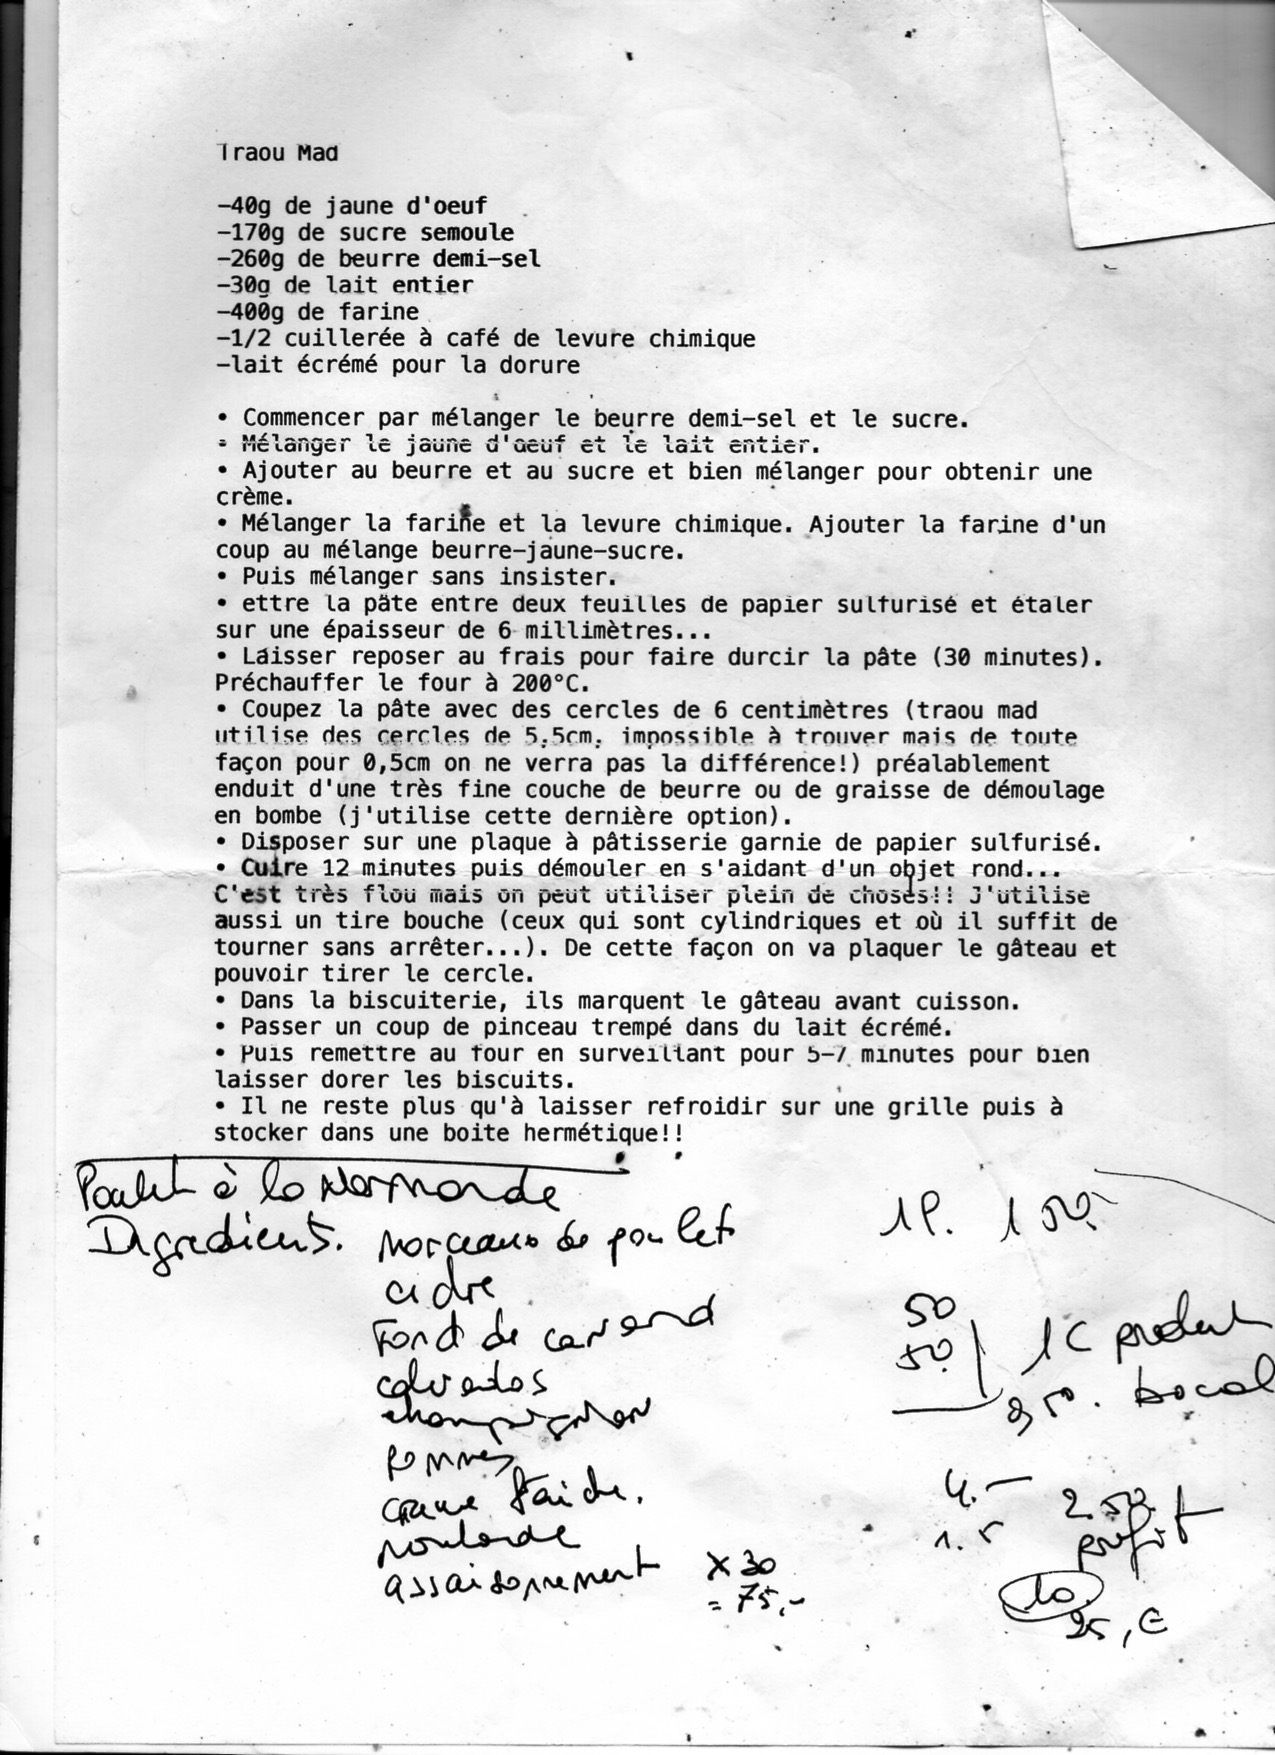 Traou Mad
-40g de jaune d'oeuf
-170g de sucre semoule
-260g de beurre demi-sel
-30g de lait entier
-400g de farine
-1/2 cuillerée à café de levure chimique
-lait écrémé pour la dorure
• Commencer par mélanger le beurre demi-sel et le sucre.
• Mélanger le jaune d'oeuf et le lait entier.
• Ajouter au beurre et au sucre et bien mélanger pour obtenir une
crème.
• Mélanger la farine et la levure chimique. Ajouter la farine d'un
coup au mélange beurre-jaune-sucre.
• Puis mélanger sans insister.
• ettre la pâte entre deux feuilles de papier sulfurisé et étaler
sur une épaisseur de 6 millimètres...
• Laisser reposer au frais pour faire durcir la pâte (30 minutes).
Préchauffer le four à 200°C.
• Coupez la pâte avec des cercles de 6 centimètres (traou mad
utilise des cercles de 5,5cm, impossible à trouver mais de toute
façon pour 0,5cm on ne verra pas la différence!) préalablement
enduit d'une très fine couche de beurre ou de graisse de démoulage
en bombe (j'utilise cette dernière option).
• Disposer sur une plaque à pâtisserie garnie de papier sulfurisé.
• Cuire 12 minutes puis démouler en s'aidant d'un objet rond...
C'est très flou mais on peut utiliser plein de choses!! J'utilise
aussi un tire bouche (ceux qui sont cylindriques et où il suffit de
tourner sans arrêter...). De cette façon on va plaquer le gâteau et
pouvoir tirer le cercle.
• Dans la biscuiterie, ils marquent le gâteau avant cuisson.
• Passer un coup de pinceau trempé dans du lait écrémé.
• Puis remettre au four en surveillant pour 5-7 minutes pour bien
laisser dorer les biscuits.
• Il ne reste plus qu'à laisser refroidir sur une grille puis à
stocker dans une boite hermétique!!
Poulet à la Normande
Ingredients. morceaux de poulet
cidre
Fond de canard
calvados
champignon
pommes
creme fraiche.
moutarde
assaisonnement x 30
= 75,-
1P.
50
50. 1C produit
bocal
4.-
2.50
1.5 profit
10
25,€